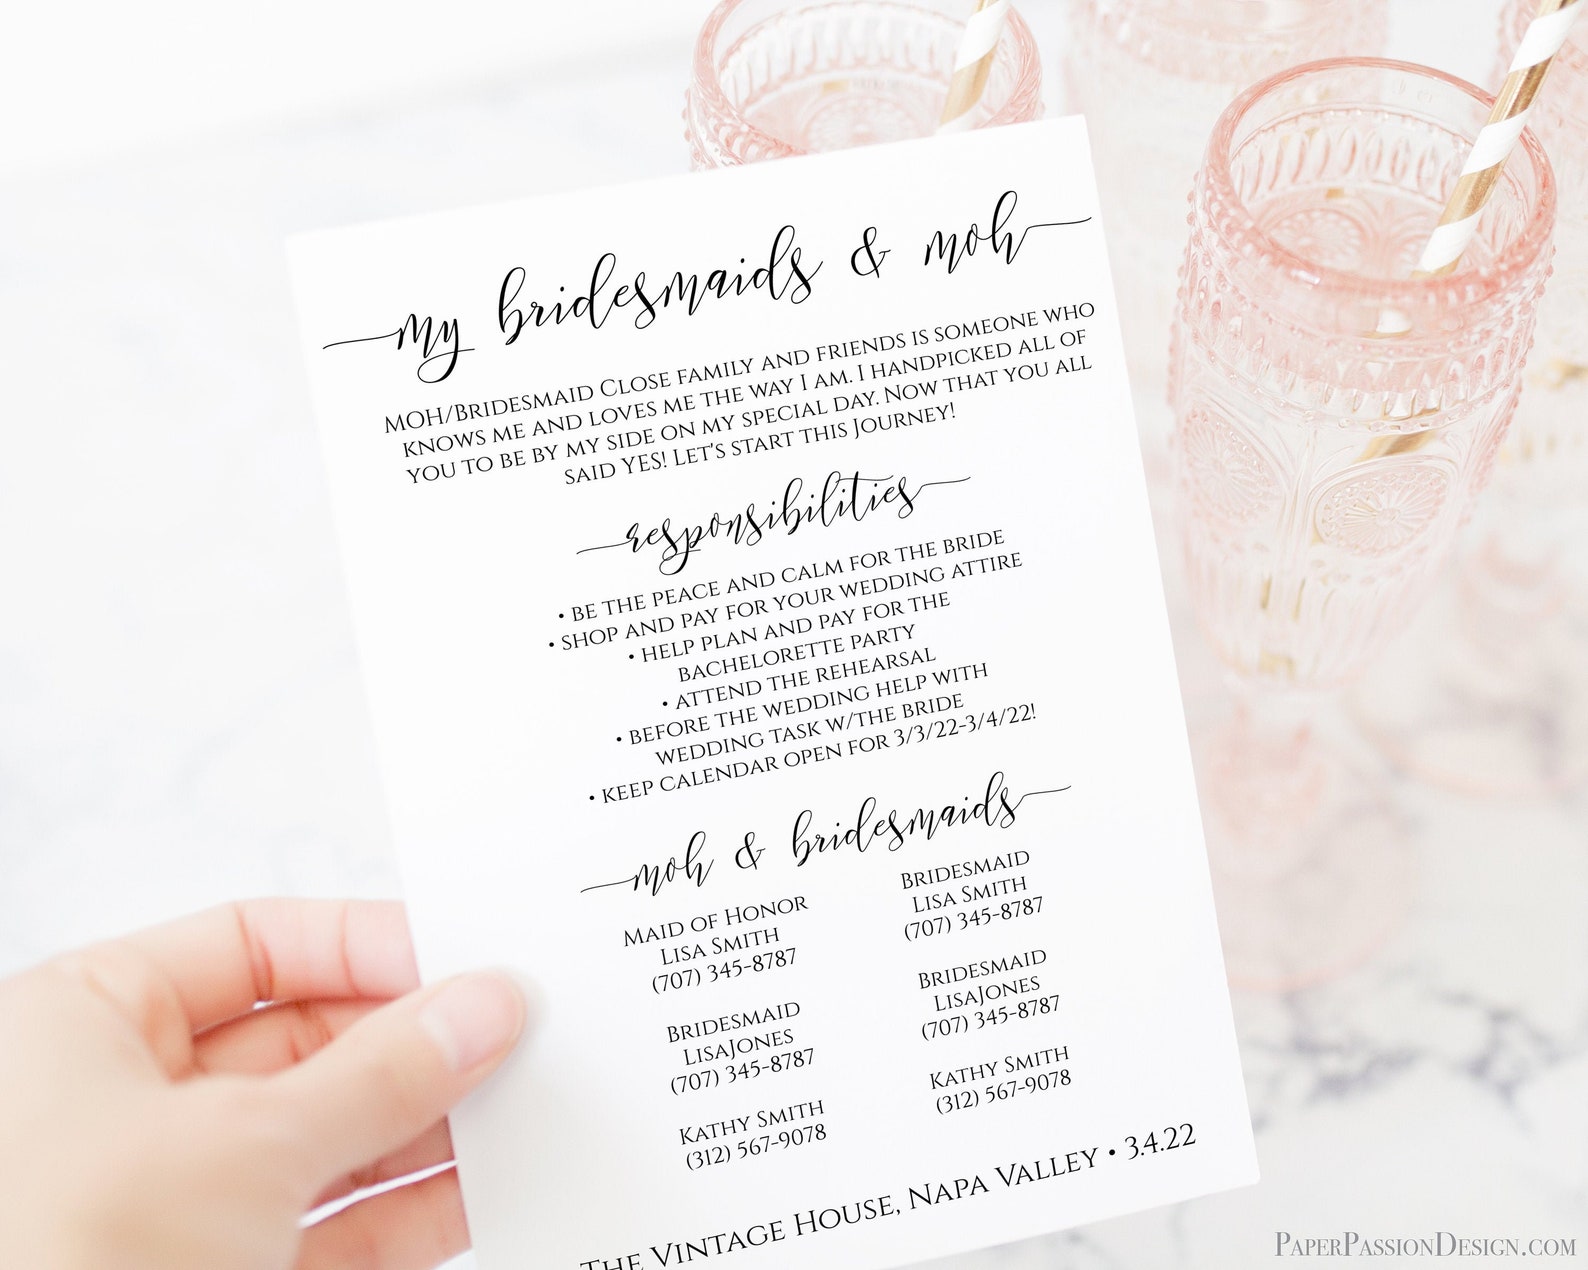 my bridesmaids & moh
MOH/Bridesmaid Close family and friends is someone who
knows me and loves me the way I am. I handpicked all of
you to be by my side on my special day. Now that you all
said YES! Let's start this Journey!
responsibilities
• be the peace and calm for the bride
• shop and pay for your wedding attire
• help plan and pay for the
bachelorette party
• attend the rehearsal
• before the wedding help with
wedding task w/the bride
• keep calendar open for 3/3/22-3/4/22!
moh & bridesmaids
Maid of Honor
Lisa Smith
(707) 345-8787
Bridesmaid
LisaJones
(707) 345-8787
Kathy Smith
(312) 567-9078
Bridesmaid
Lisa Smith
(707) 345-8787
Bridesmaid
LisaJones
(707) 345-8787
Kathy Smith
(312) 567-9078
The Vintage House, Napa Valley • 3.4.22
PaperPassionDesign.com